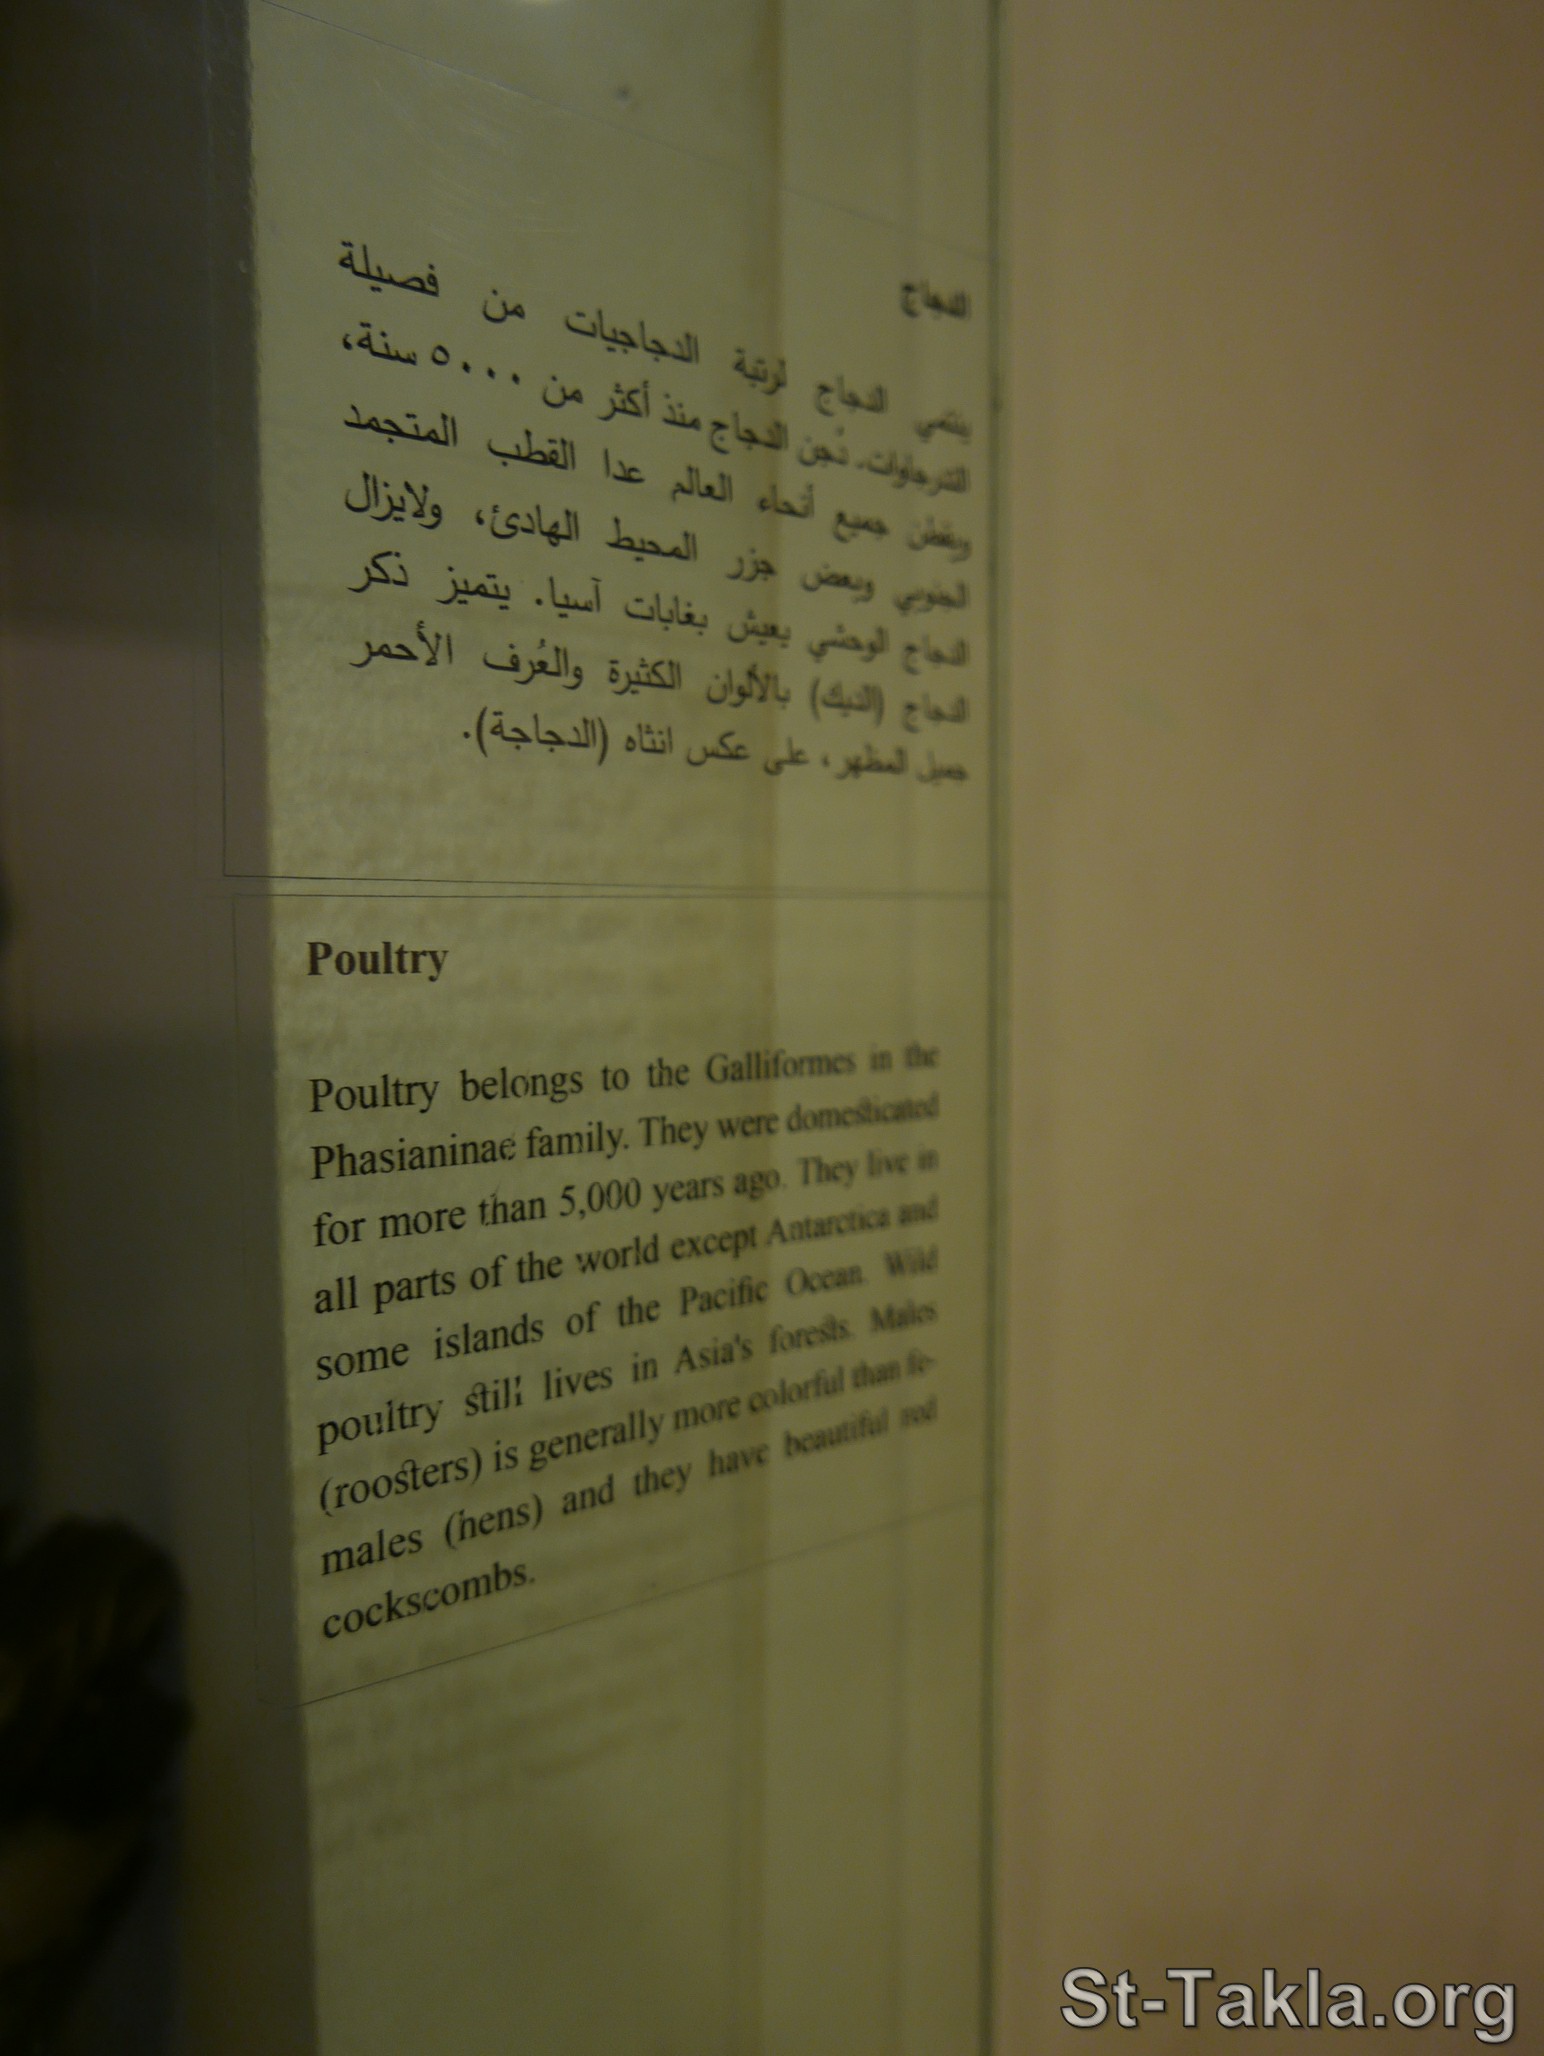 الدجاج
ينتمي الدجاج لرتبة الدجاجيات من فصيلة
التدرجاوات. دُجن الدجاج منذ أكثر من ٥٠٠٠ سنة،
ويقطن جميع أنحاء العالم عدا القطب المتجمد
الجنوبي وبعض جزر المحيط الهادئ، ولايزال
الدجاج الوحشي يعيش بغابات آسيا. يتميز ذكر
الدجاج (الديك) بالألوان الكثيرة والعُرف الأحمر
جميل المظهر، على عكس انثاه (الدجاجة).
Poultry
Poultry belongs to the Galliformes in the
Phasianinae family. They were domesticated
for more than 5,000 years ago. They live in
all parts of the world except Antarctica and
some islands of the Pacific Ocean. Wild
poultry still lives in Asia's forests. Males
(roosters) is generally more colorful than fe-
males (hens) and they have beautiful red
cockscombs.
St-Takla.org